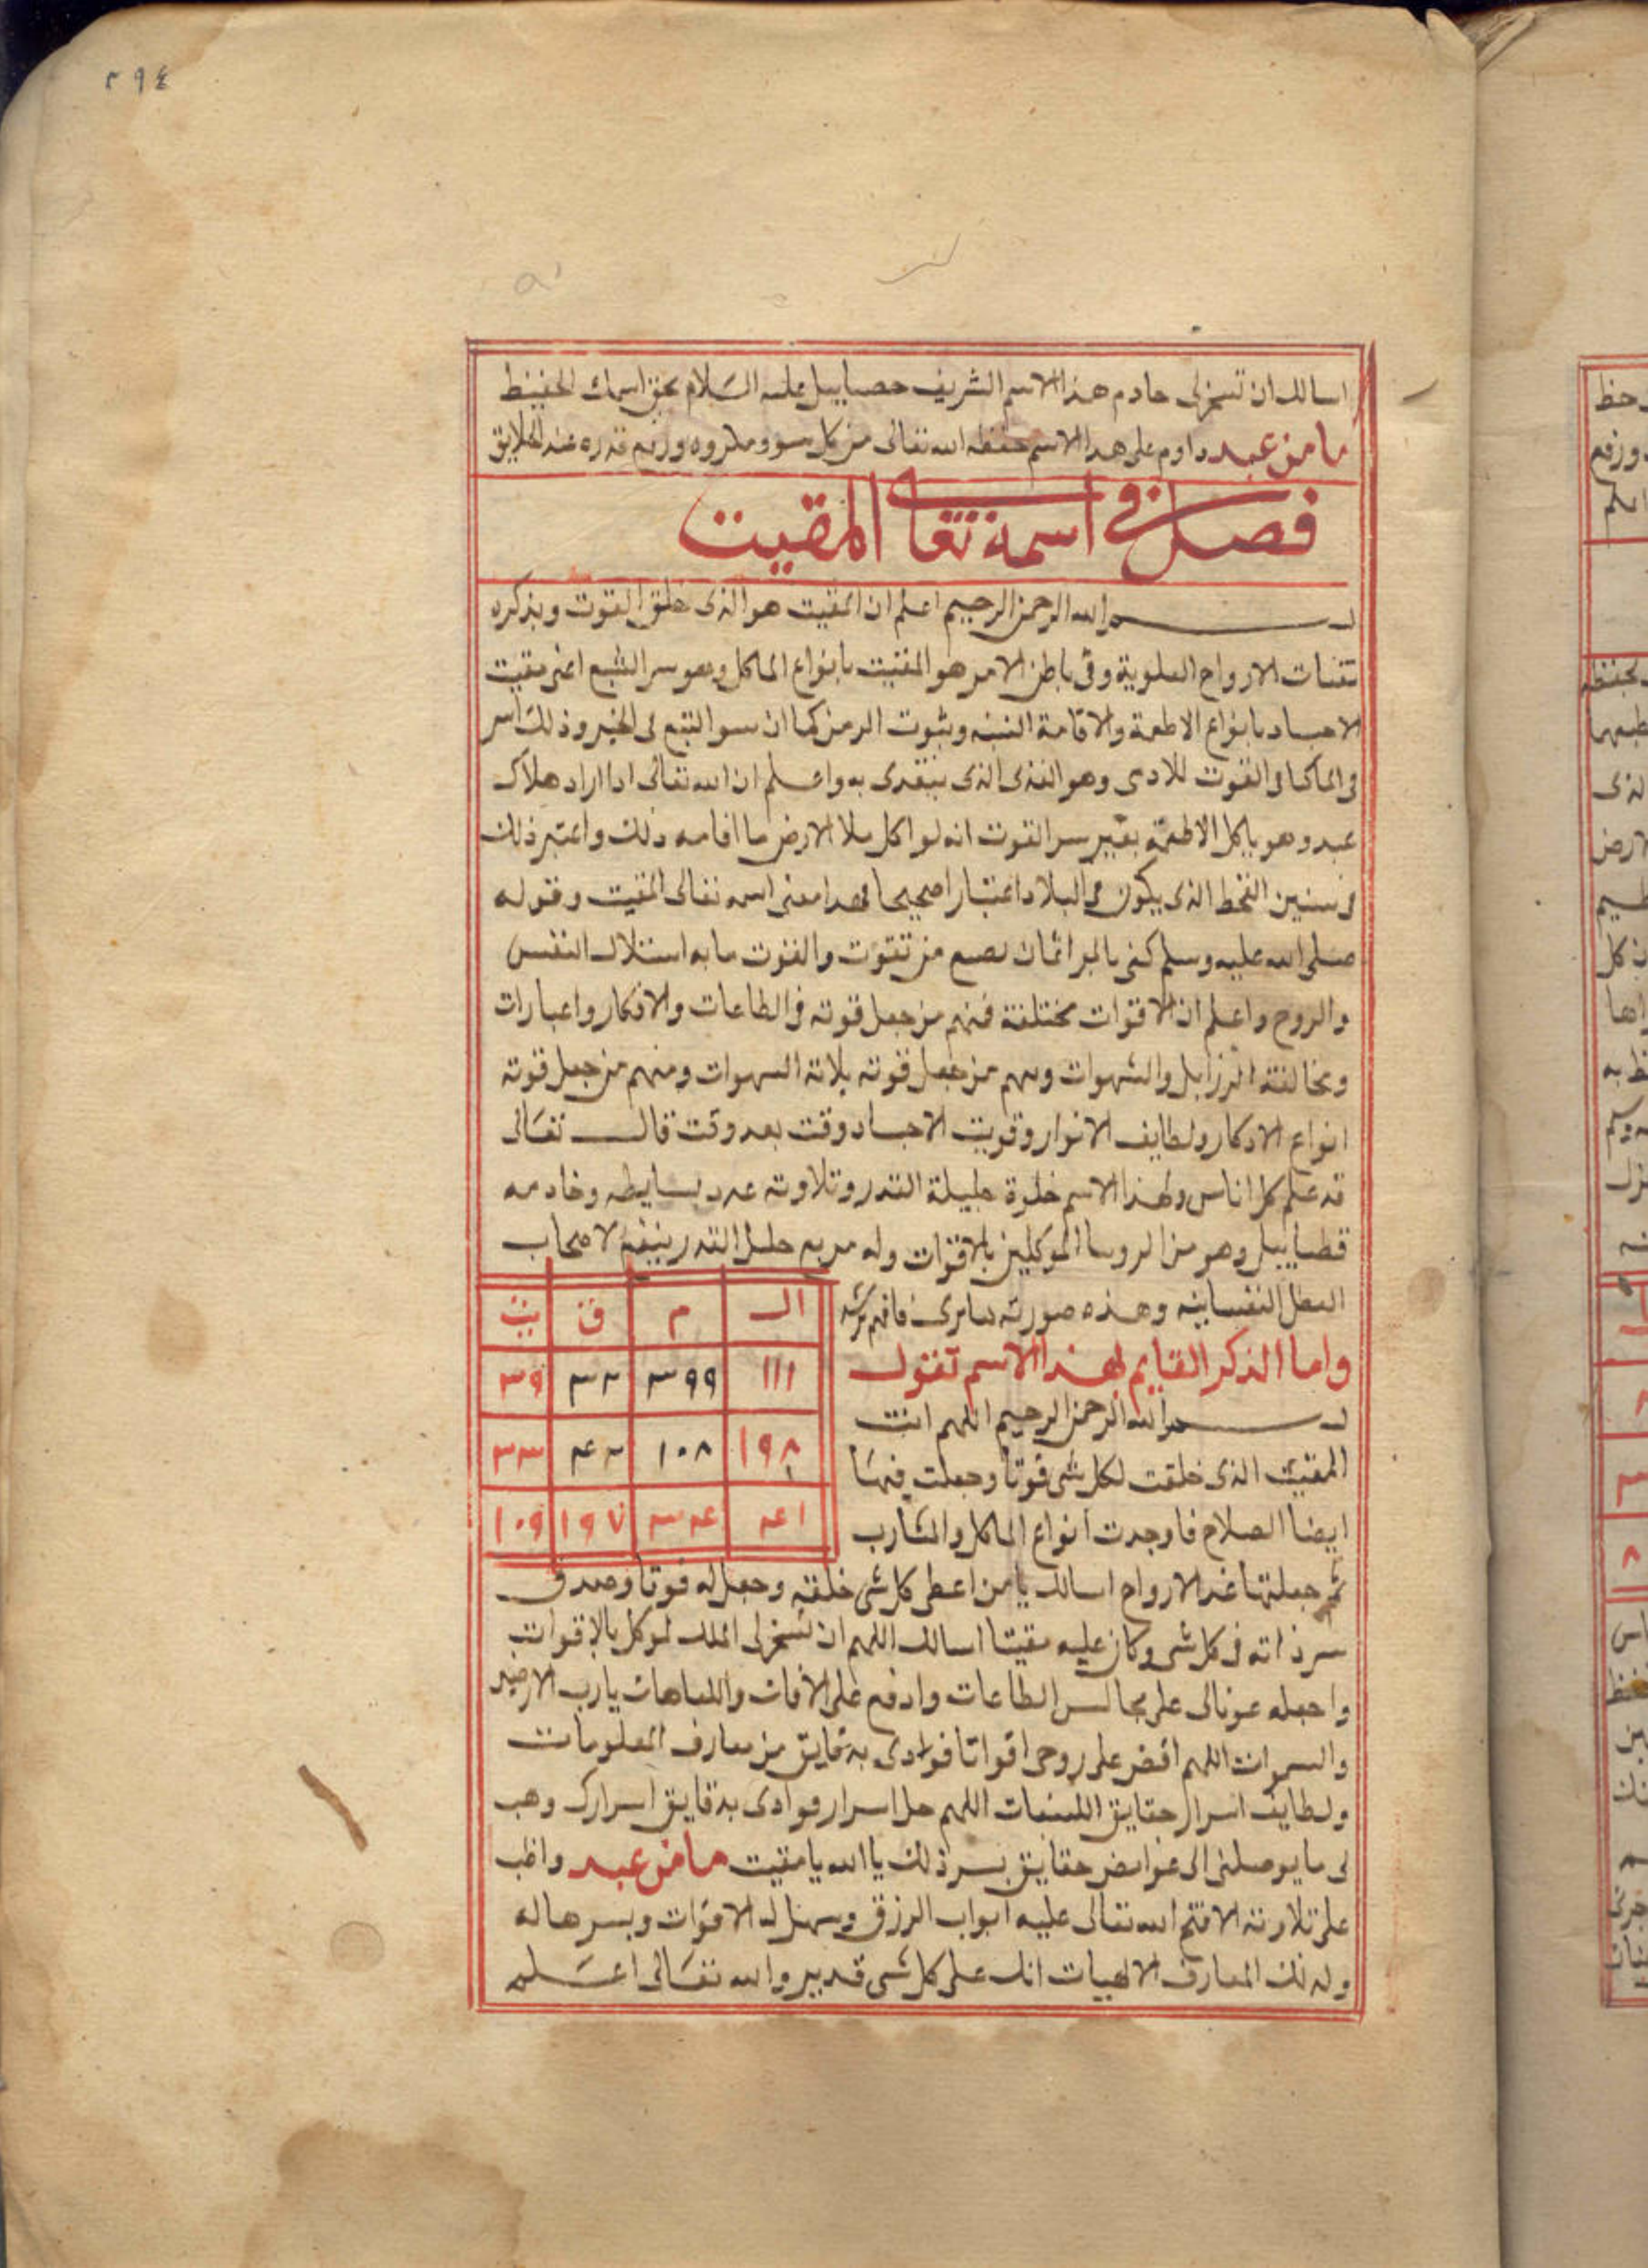 ٣٩٤
اسالك ان تسخر لى خادم هذا الاسم الشريف حصياييل عليه السلام بحق اسمك الحفيظ
ما من عبد داوم على هذا الاسم حفظه الله تعالى من كل سوء ومكروه ورفع قدره عند الخلايق
فصل فى اسمه تعالى المقيت
بسم الله الرحمن الرحيم اعلم ان المقيت هو الذى خلق القوت وبذكره
تقتات الارواح العلوية وفى باطن الامر هو المقيت بانواع الماكل وهو سر الشبع اعنى مقيت
الاجساد بانواع الاطعمة والاقامة وثبوت الرمز كما ان فى الخبز وذلك سر
القوت للادمى وهو الغذى الذى يتغدى به واعلم ان الله تعالى اذا اراد هلاك
عبد وهو ياكل الاطعمة بغير سر القوت انه لو اكل ملا الارض ما اقامه ذلك واعتبر ذلك
فى سنين القحط الذى يكون فى البلاد اعتبارا صحيحا فهذا معنى اسمه تعالى المقيت وقوله
صلى الله عليه وسلم كفى بالمر اثما ان يضيع من تقوت والقوت ما به استقلال النفس
والروح واعلم ان الاقوات مختلفة فمنهم من جعل قوته فى الطاعات والافكار واعبارات
ومخالفة الرزايل والشهوات ومنهم من جعل قوته بلاته الشهوات ومنهم من جعل قوته
انواع الاذكار ولطايف الانوار وقويت الاجساد وقت بعد وقت قال تعالى
قد علم كل اناس ولهذا الاسم خلوة جليلة القدر وتلاوته عدد بسايطه وخادمه
قطياييل وهو من الروسا الموكلين بالاقوات وله مربع جليل القدر ينفع لاصحاب
النفسانية وهذه صورته كما ترى فافهم ترشد
ال م ق يت
١١١ ٣٩٩ ٣٢ ٣٩
١٩٨ ١٠٨ ٤٢ ٣٣
٤١ ٣٤ ١٩٧ ١٠٩
واما الذكر القايم بهذا الاسم تقول
بسم الله الرحمن الرحيم اللهم انت
المقيت الذى خلقت لكل شى قوتا وجعلت فيها
ايضا الصلاح فاوجدت انواع الماكل والمشارب
ثم جعلتها غذ الارواح اسالك يا من اعطى كل شى خلقه وجعل له قوتا وصدق
سر ذاته فى كل شى وكان عليه مقيتا اسالك اللهم ان تسخر لى الملك لموكل بالاقوات
واجعله عونا لى على مجالس الطاعات وادفع على الافات والعاهات يا رب الارضين
والسموات اللهم افض على روحى اقواتا فوادى بدقايق من معارف المعلومات
ولطايف اسرار حقايق اللهم حل اسرار فوادى بدقايق اسرارك وهب
لى ما يوصلنى الى غوامض حقايق بسر ذلك يا الله يا مقيت ما من عبد واظب
على تلاوته الا فتح الله تعالى عليه ابواب الرزق وسهل له الاقوات ويسرها له
وله تلك المعارف الالهيات انك على كل شى قدير والله تعالى اعلم